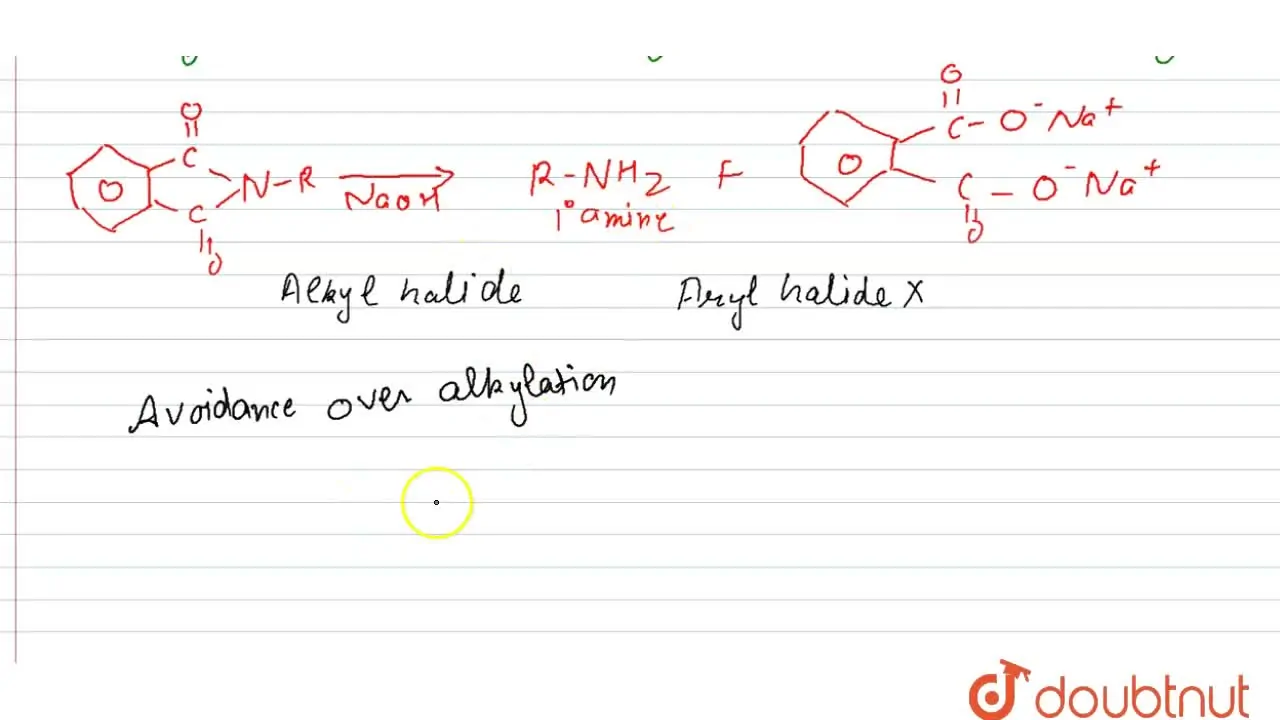 O
||
C
N-R
C
||
O
NaOH
R-NH2
1° amine
+
O
||
C-O⁻Na⁺
C-O⁻Na⁺
||
O
Alkyl halide
Aryl halide X
Avoidance over alkylation
doubtnut